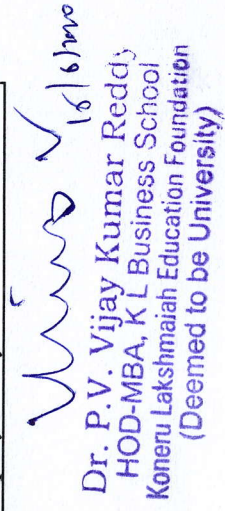 Dr. P.V. Vijay Kumar Reddy
HOD-MBA, K L Business School
Koneru Lakshmaiah Education Foundation
(Deemed to be University)